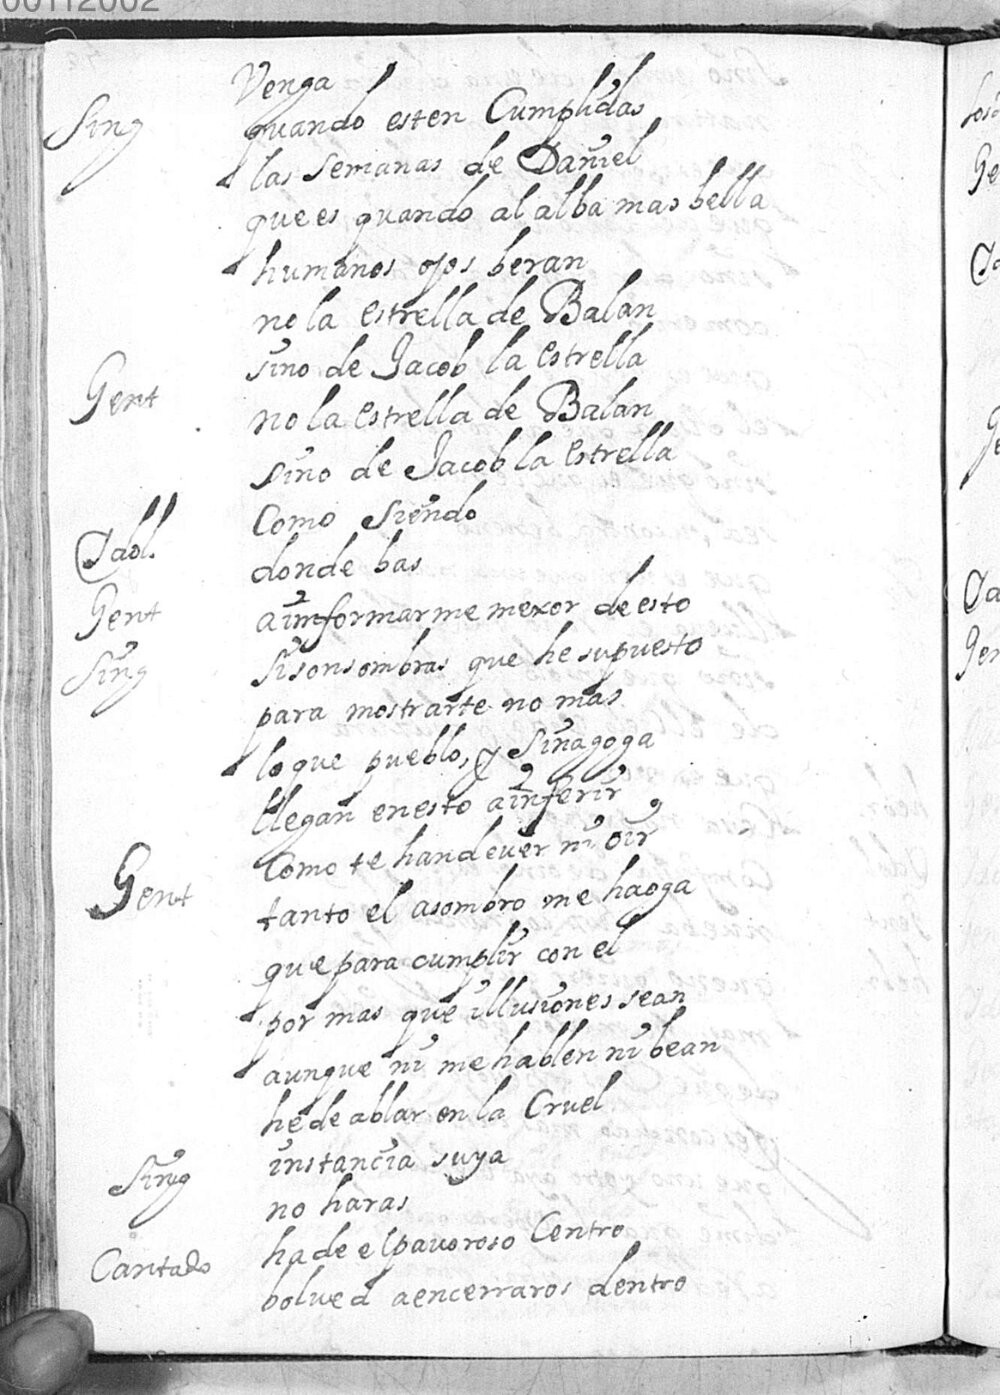 00112002
Venga
Sing quando esten Cumplidas
las semanas de Daniel
que es quando al alba mas bella
humanos ojos beran
no la estrella de Balan
sino de Jacob la estrella
Gent no la estrella de Balan
sino de Jacob la estrella
Como siendo
Idol. donde bas
Gent a informarme mexor de esto
Sing si son sombras que he supuesto
para mostrarte no mas
lo que pueblo, y Sinagoga
llegan en esto a inferir
Como te han de ver ni oir
Gent tanto el asombro me haoga
que para cumplir con el
por mas que illusiones sean
aunque ni me hablen ni bean
he de ablar en la Cruel
instancia suya
Sing no haras
ha de el pavoroso Centro
Cantado bolved a encerraros dentro